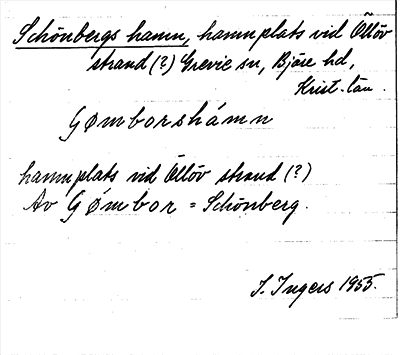 Schönbergs hamn, hamnplats vid Öllöv
strand (?) Grevie sn, Bjäre hd,
Krist. län.
Gømborshámn
hamnplats vid Öllöv strand (?)
Av Gømbor = Schönberg.
I. Ingers 1955.